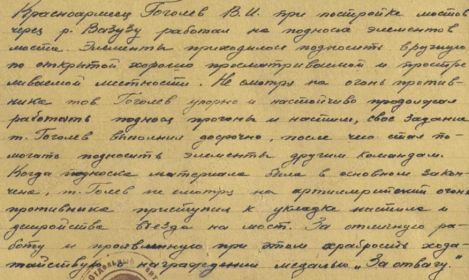 Красноармеец Гоголев В.И. при постройке мостов
через р. Вазузу работал на подноске элементов
моста. Элементы приходилось подносить вручную
по открытой хорошо просматриваемой и простре-
ливаемой местности. Не смотря на огонь против-
ника тов Гоголев упорно и настойчиво продолжал
работать поднося прогоны и настил, свое задание
т. Гоголев выполнил досрочно, после чего стал по-
могать подносить элементы другим командам.
Когда подноска материала была в основном закон-
чена, т. Голев не смотря на артиллеритский огонь
противника приступил к укладке настила и
устройства въезда на мост. За отличную ра-
боту и проявленную при этом храбрость хода-
тайствую о награждении медалью "За отвагу"